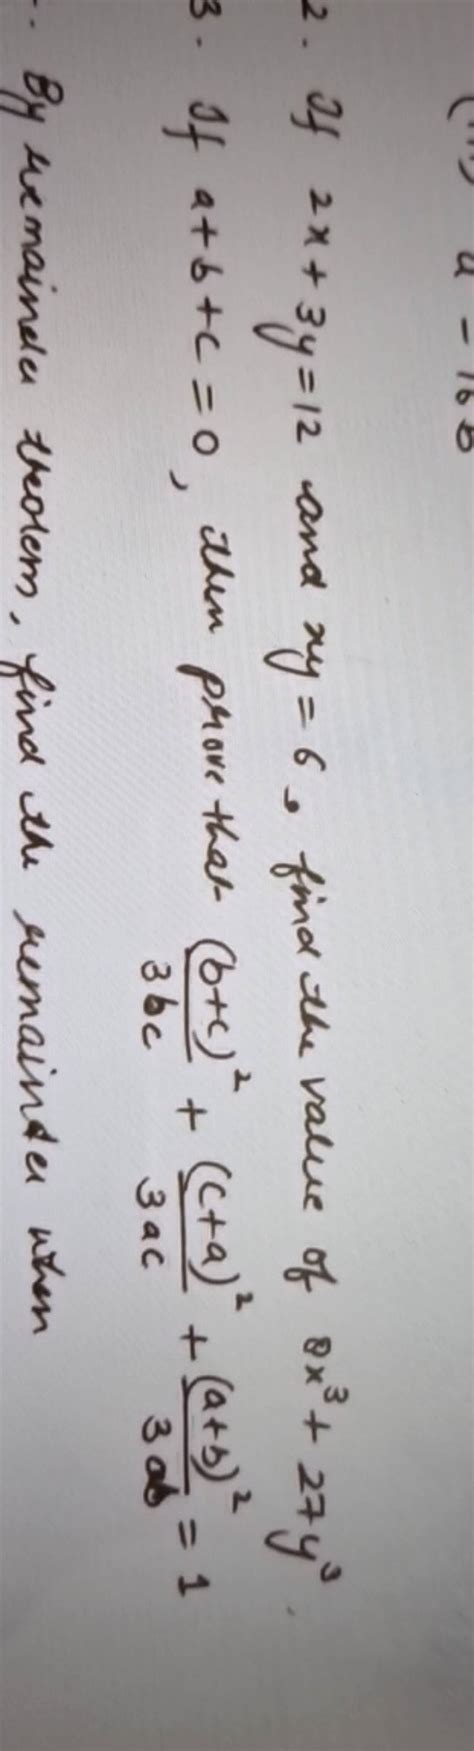 (iii) a - 16b
2. If 2x + 3y = 12 and xy = 6, find the value of 8x³ + 27y³.
3. If a + b + c = 0, then prove that (b+c)²/3bc + (c+a)²/3ac + (a+b)²/3ab = 1
. By remainder theorem, find the remainder when